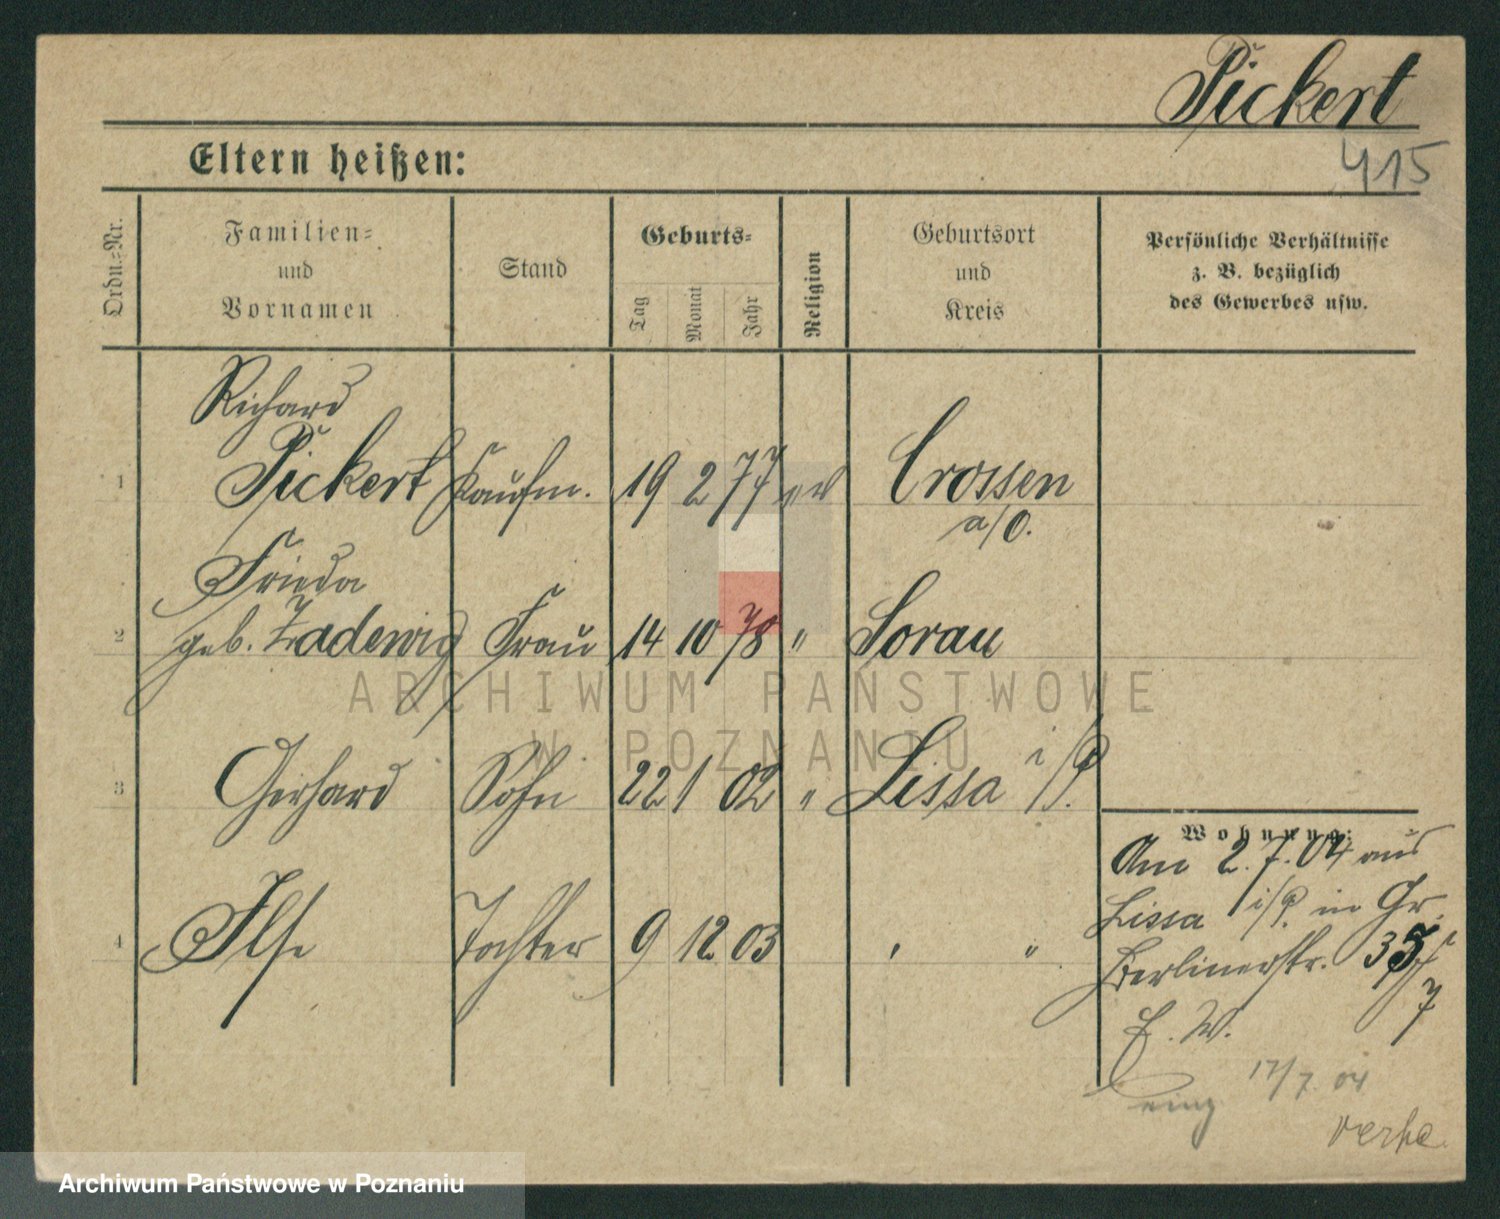 Pickert
415
Eltern heißen:
Ordn.=Nr.
Familien=
und
Vornamen
Stand
Geburts=
Tag
Monat
Jahr
Religion
Geburtsort
und
Kreis
Persönliche Verhältnisse
z. B. bezüglich
des Gewerbes usw.
Richard
1 Pickert Kaufm. 19 2 77 ev Crossen
a/O.
Frieda
2 geb. Zadewig Frau 14 10 78 " Sorau
3 Gerhard Sohn 22 1 02 " Lissa i/P.
4 Ilse Tochter 9 12 03 " "
Wohnung:
Am 2.7.04 aus
Lissa i/P. in Gr.
Berlinerstr. 35
7
E. W.
17/7. 04
ARCHIWUM PAŃSTWOWE
W POZNANIU
Archiwum Państwowe w Poznaniu